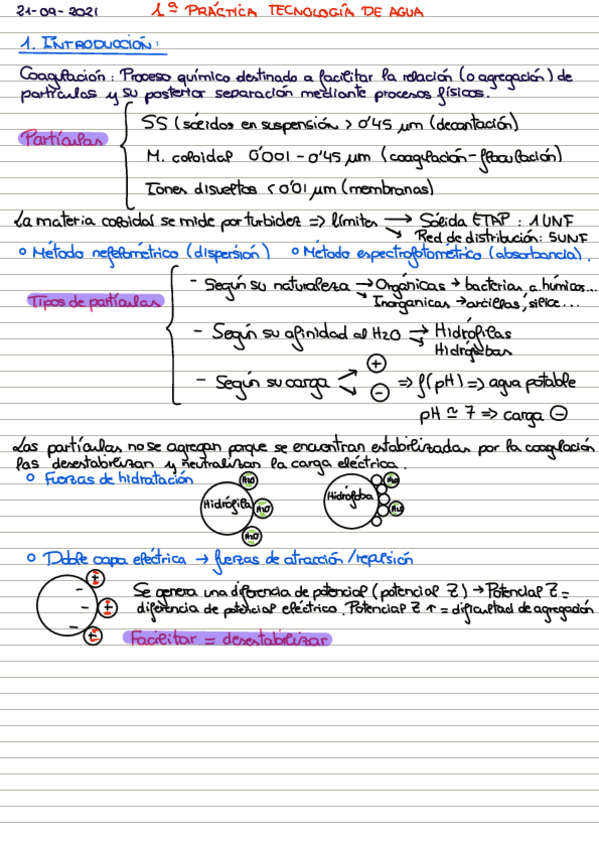 21-09-2021 1ª PRÁCTICA TECNOLOGÍA DE AGUA
1. INTRODUCCIÓN:
Coagulación: Proceso químico destinado a facilitar la relación (o agregación) de
partículas y su posterior separación mediante procesos físicos.
Partículas
SS (sólidos en suspensión > 0'45 μm (decantación)
M. coloidal 0'001 - 0'45 μm (coagulación-floculación)
Iones disueltos < 0'01 μm (membranas)
La materia coloidal se mide por turbidez => límites → Sólida ETAP : 1 UNF
↘ Red de distribución: 5UNF
o Método nefelométrico (dispersión) o Método espectrofotométrico (absorbancia).
Tipos de partículas
- Según su naturaleza → Orgánicas → bacterias, a. húmicos...
↘ Inorganicas → arcillas, sílice...
- Según su afinidad al H2O → Hidrófilas
↘ Hidrófobas
- Según su carga + - => f(pH) => agua potable
pH ≃ 7 => carga ⊖
Las partículas no se agregan porque se encuentran estabilizadas por la coagulación
las desestabilizan y neutralizan la carga eléctrica.
o Fuerzas de hidratación
Hidrófila H2O H2O H2O Hidrófoba H2O H2O
o Doble capa eléctrica → fuerzas de atracción/repulsión
- + - + - +
Se genera una diferencia de potencial (potencial Z) → Potencial Z =
diferencia de potencial eléctrico. Potencial Z ↑ = dificultad de agregación
Facilitar = desestabilizar